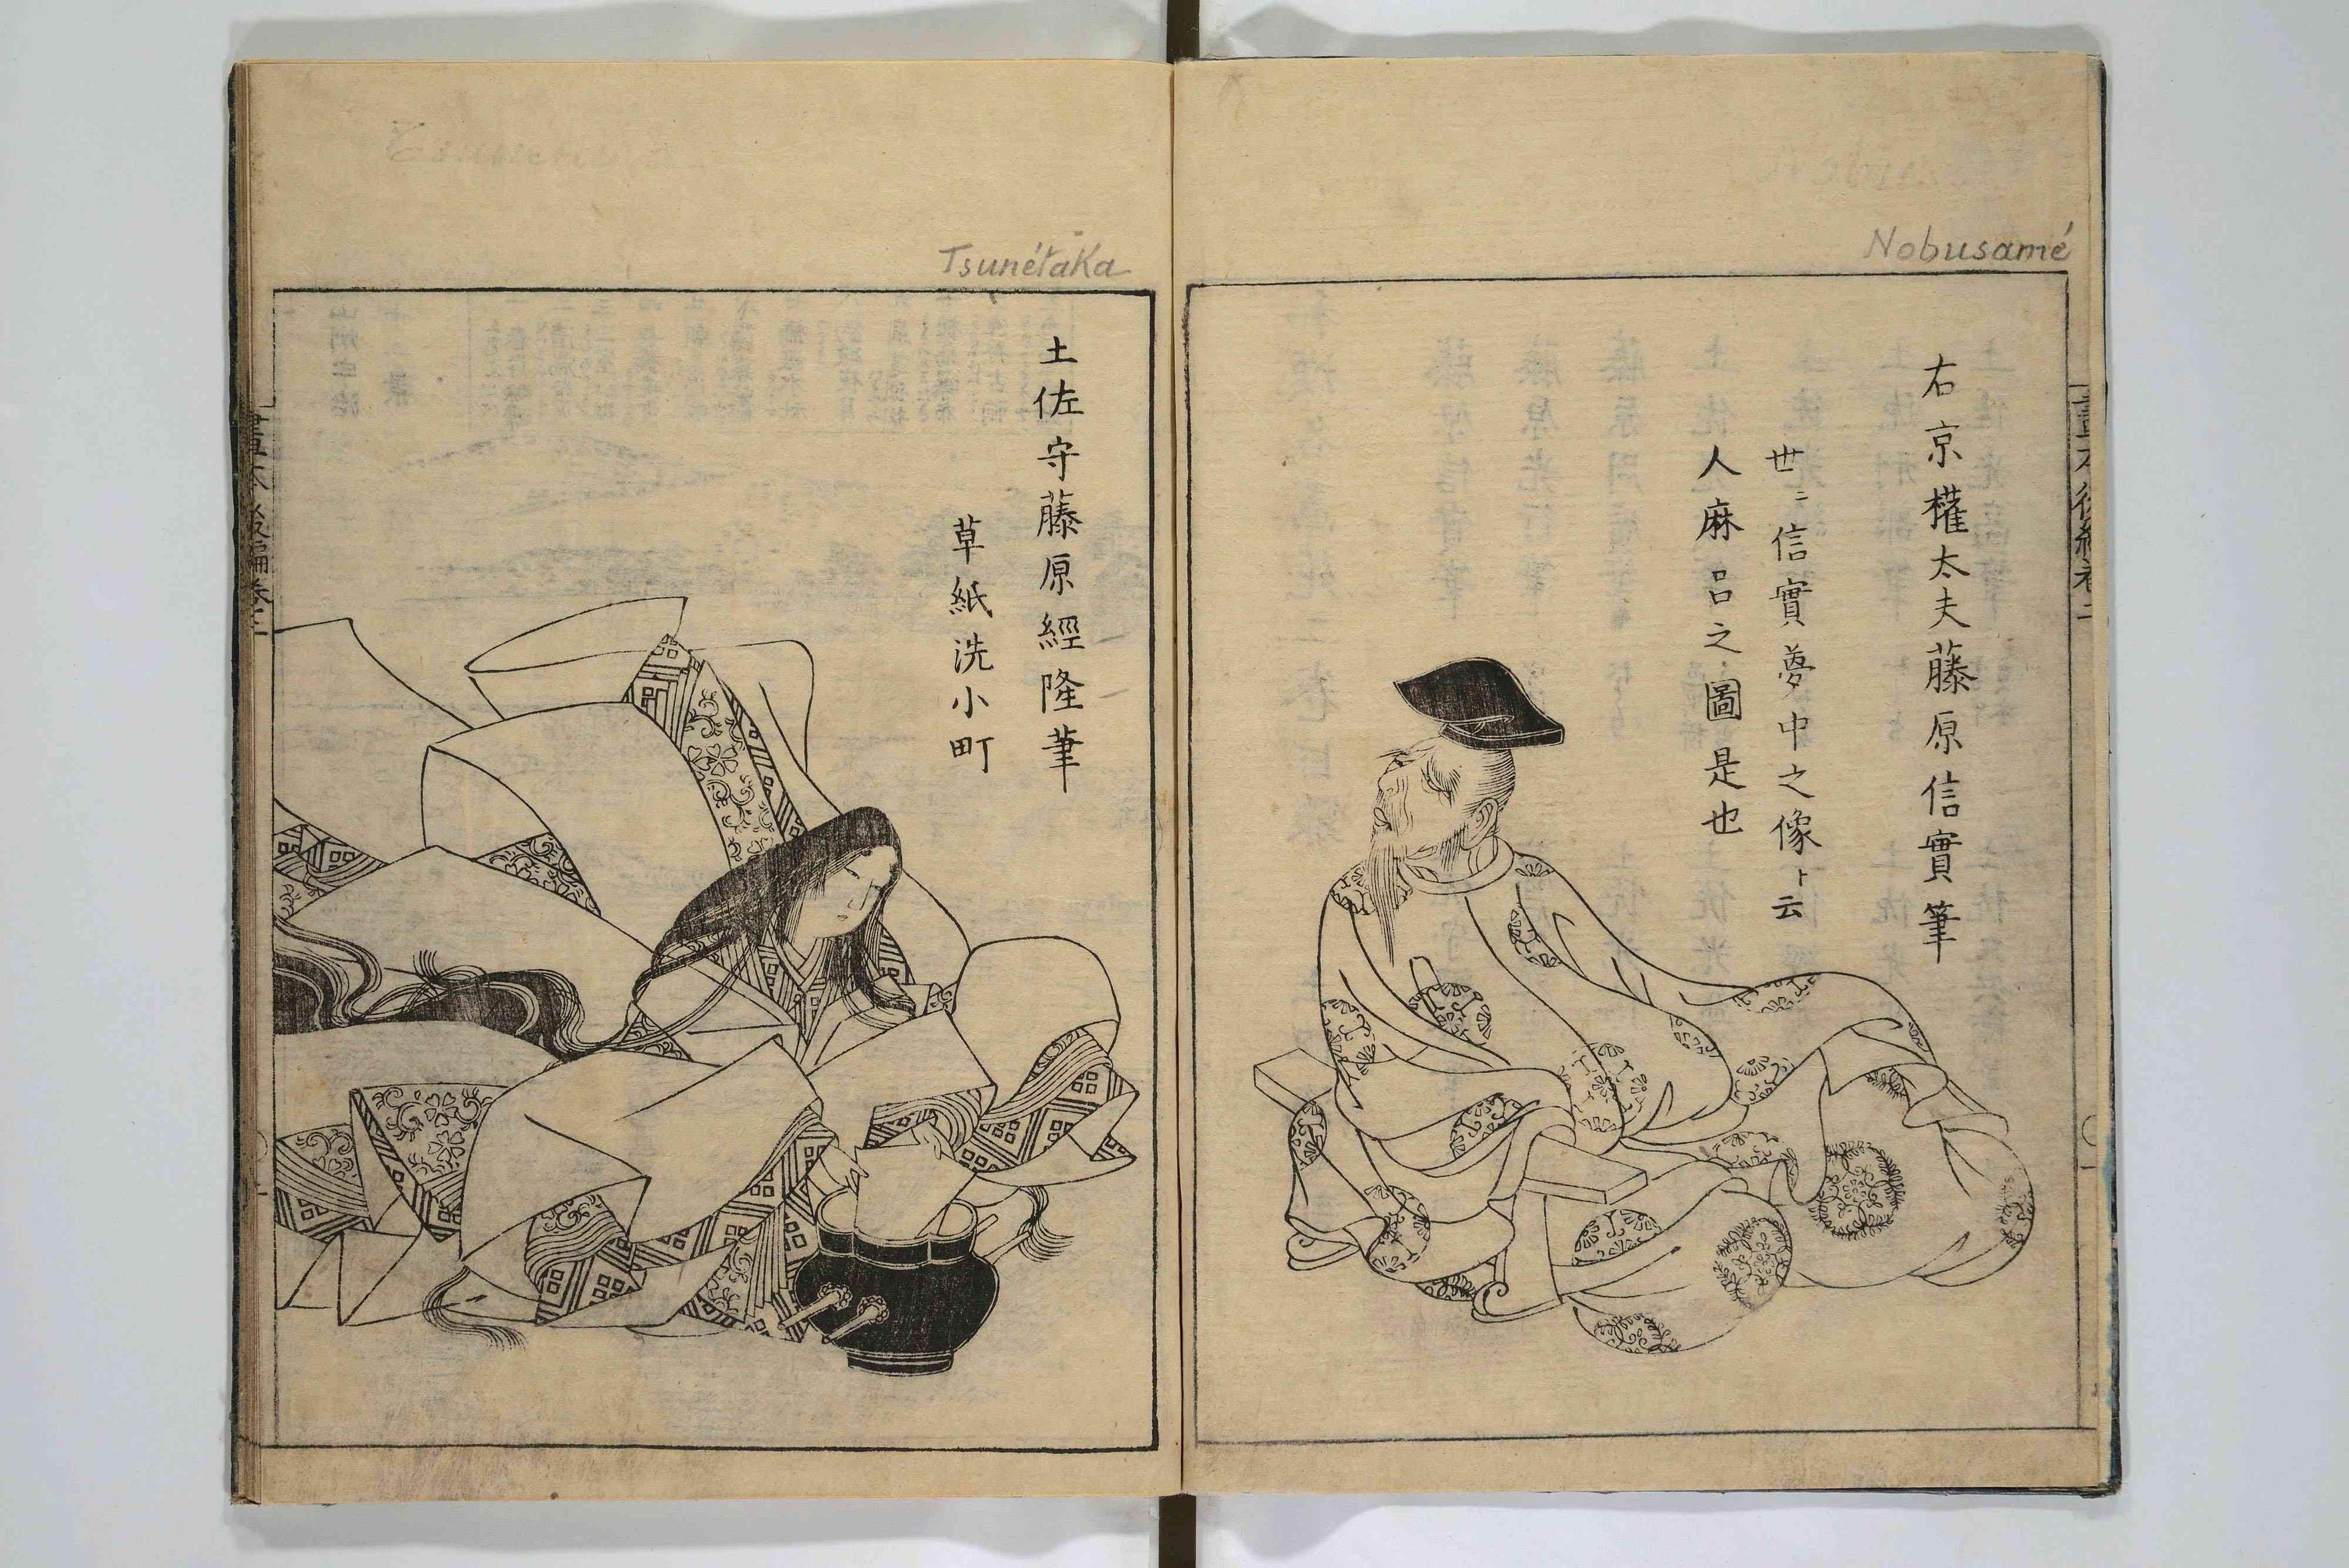 Nobusamé
右京權太夫藤原信實筆
世ニ信實夢中之像ト云
人麻呂之圖是也
Tsunétaka
土佐守藤原經隆筆
草紙洗小町